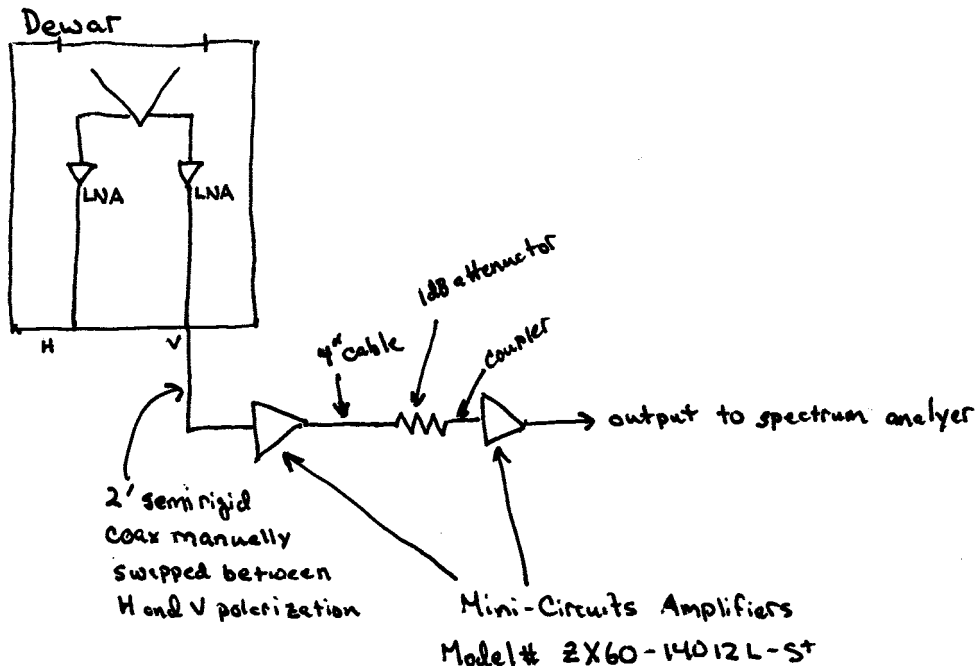 Dewar
LNA
LNA
H
V
1dB attenuator
4" cable
coupler
output to spectrum analyer
2' semirigid
coax manually
swapped between
H and V polarization
Mini-Circuits Amplifiers
Model# ZX60-14012L-S+